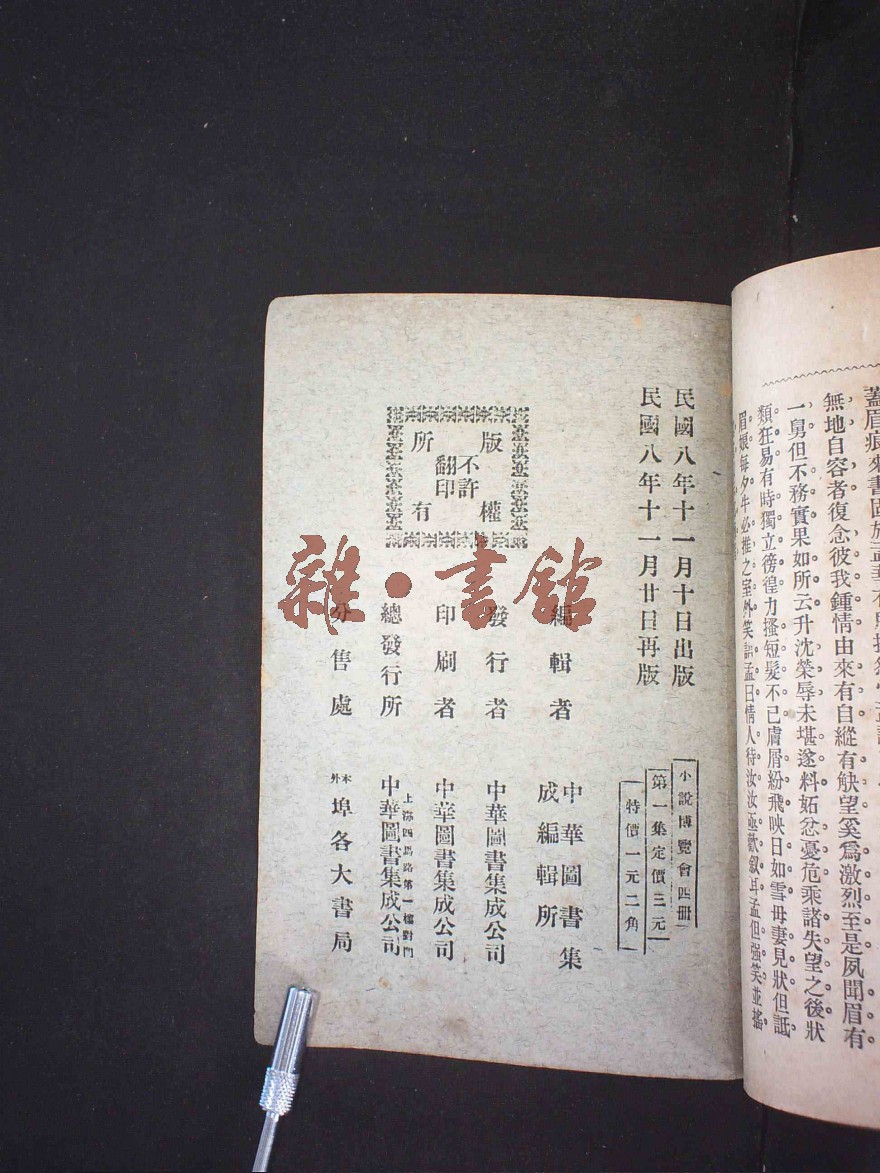 無地自容者復念彼我鍾情由來有自縱有觖望奚爲激烈至是夙聞眉有
一舅但不務實果如所云升沈榮辱未堪遂料妬忿憂危乘諸失望之後狀
類狂易有時獨立徬徨力搔短髮不已膚屑紛飛映日如雪毋妻見狀但詆
眉娘每夕牛必推之室外笑語孟日情人待汝汝亟歡敘耳孟但强笑並搖
民國八年十一月十日出版
民國八年十一月廿日再版
小說博覽會四册
第一集定價三元
特價一元二角
版權所有
不許翻印
編輯者 中華圖書集成編輯所
發行者 中華圖書集成公司
印刷者 中華圖書集成公司
總發行所 上海四馬路第一樓對門 中華圖書集成公司
分售處 本外埠各大書局
雜·書館